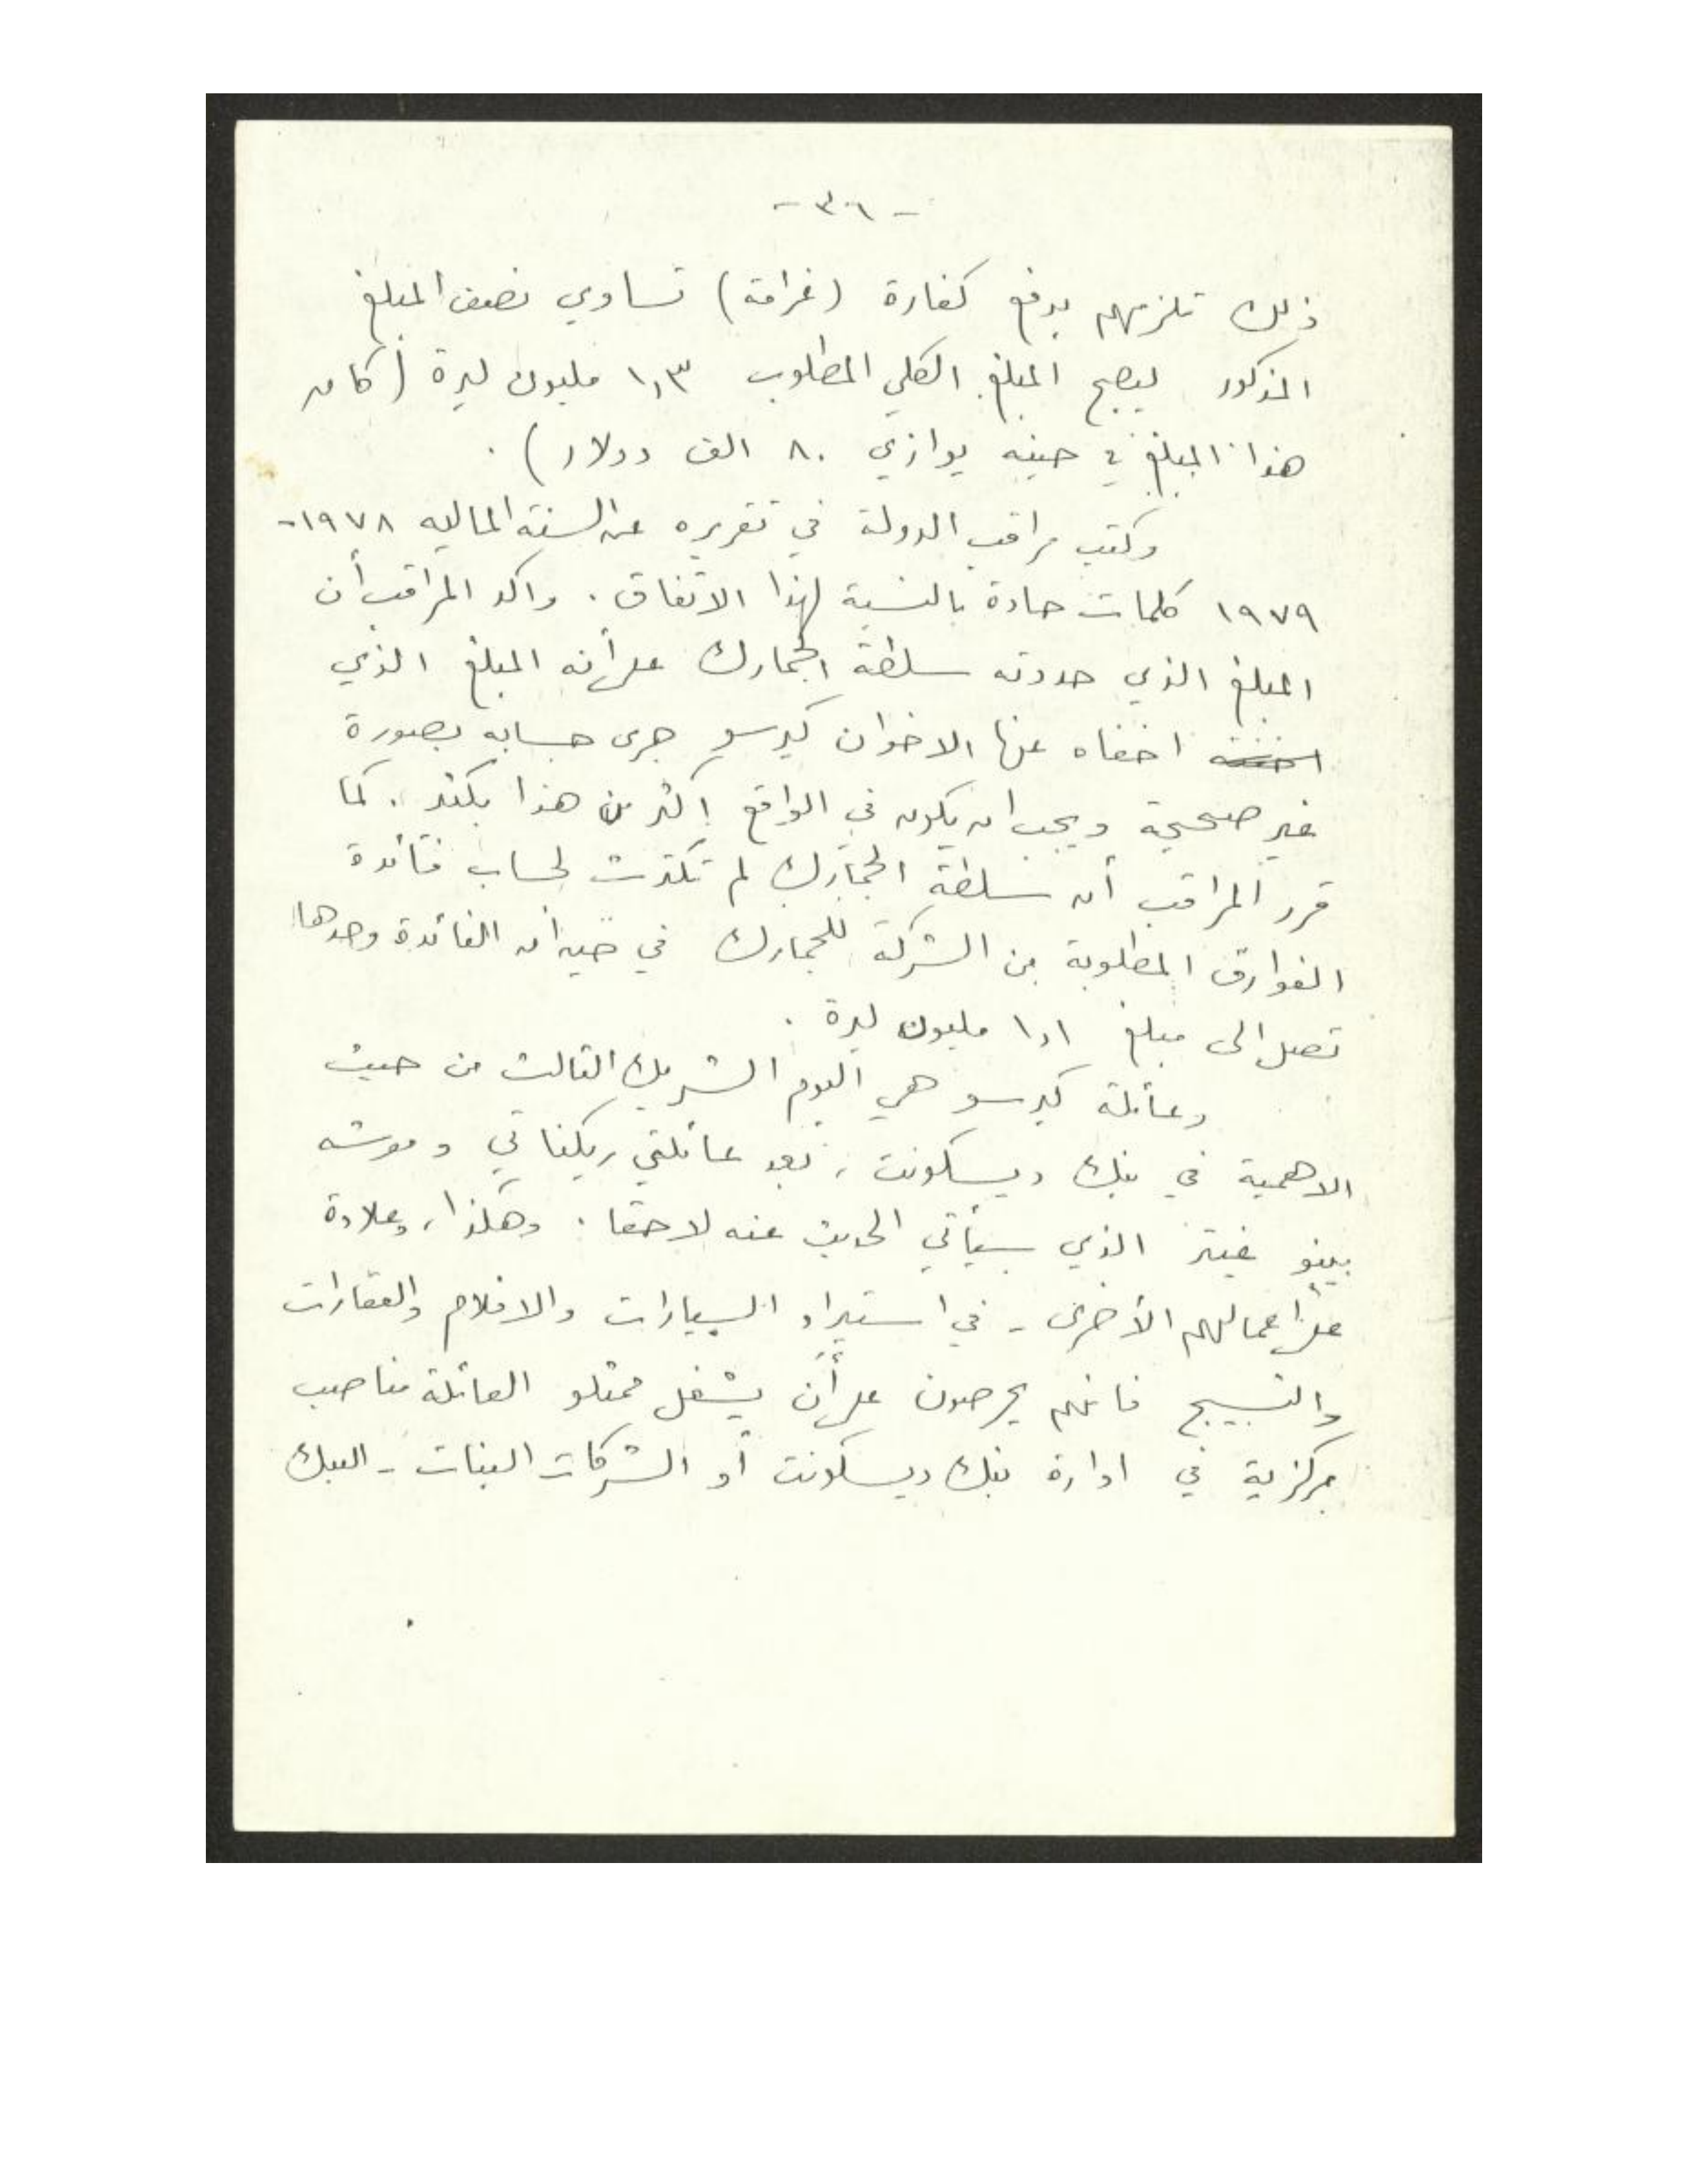 - ٣٦ -
ذلك تلزمهم بدفع كفارة (غرامة) تساوي نصف المبلغ
المذكور ليصبح المبلغ الكلي المطلوب ١,٣ مليون ليرة (كان
هذا المبلغ في حينه يوازي ٨٠ الف دولار) .
وكتب مراقب الدولة في تقريره عن السنة الماليه ١٩٧٨-
١٩٧٩ كلمات حادة بالنسبة لهذا الاتفاق . واكد المراقب أن
المبلغ الذي حددته سلطة الجمارك على أنه المبلغ الذي
اخفاه عنها الاخوان كيرسو جرى حسابه بصورة
غير صحيحة ويجب ان يكون في الواقع اكثر من هذا بكثير . كما
قرر المراقب أن سلطة الجمارك لم تكترث لحساب فائدة
الفوارق المطلوبة من الشركة للجمارك في حين أن الفائدة وحدها
تصل الى مبلغ ١,١ مليون ليرة .
وعائلة كيرسو هي اليوم الشريك الثالث من حيث
الاهمية في بنك ديسكونت ، بعد عائلتي ريكناتي و موشه
بينو غيتر الذي سيأتي الحديث عنه لاحقا . وهكذا ، وعلاوة
على اعمالهم الأخرى - في استيراد السيارات والافلام والعقارات
والنسيج فانهم يحرصون على أن يشغل ممثلو العائلة مناصب
مركزية في ادارة بنك ديسكونت أو الشركات البنات - البنك